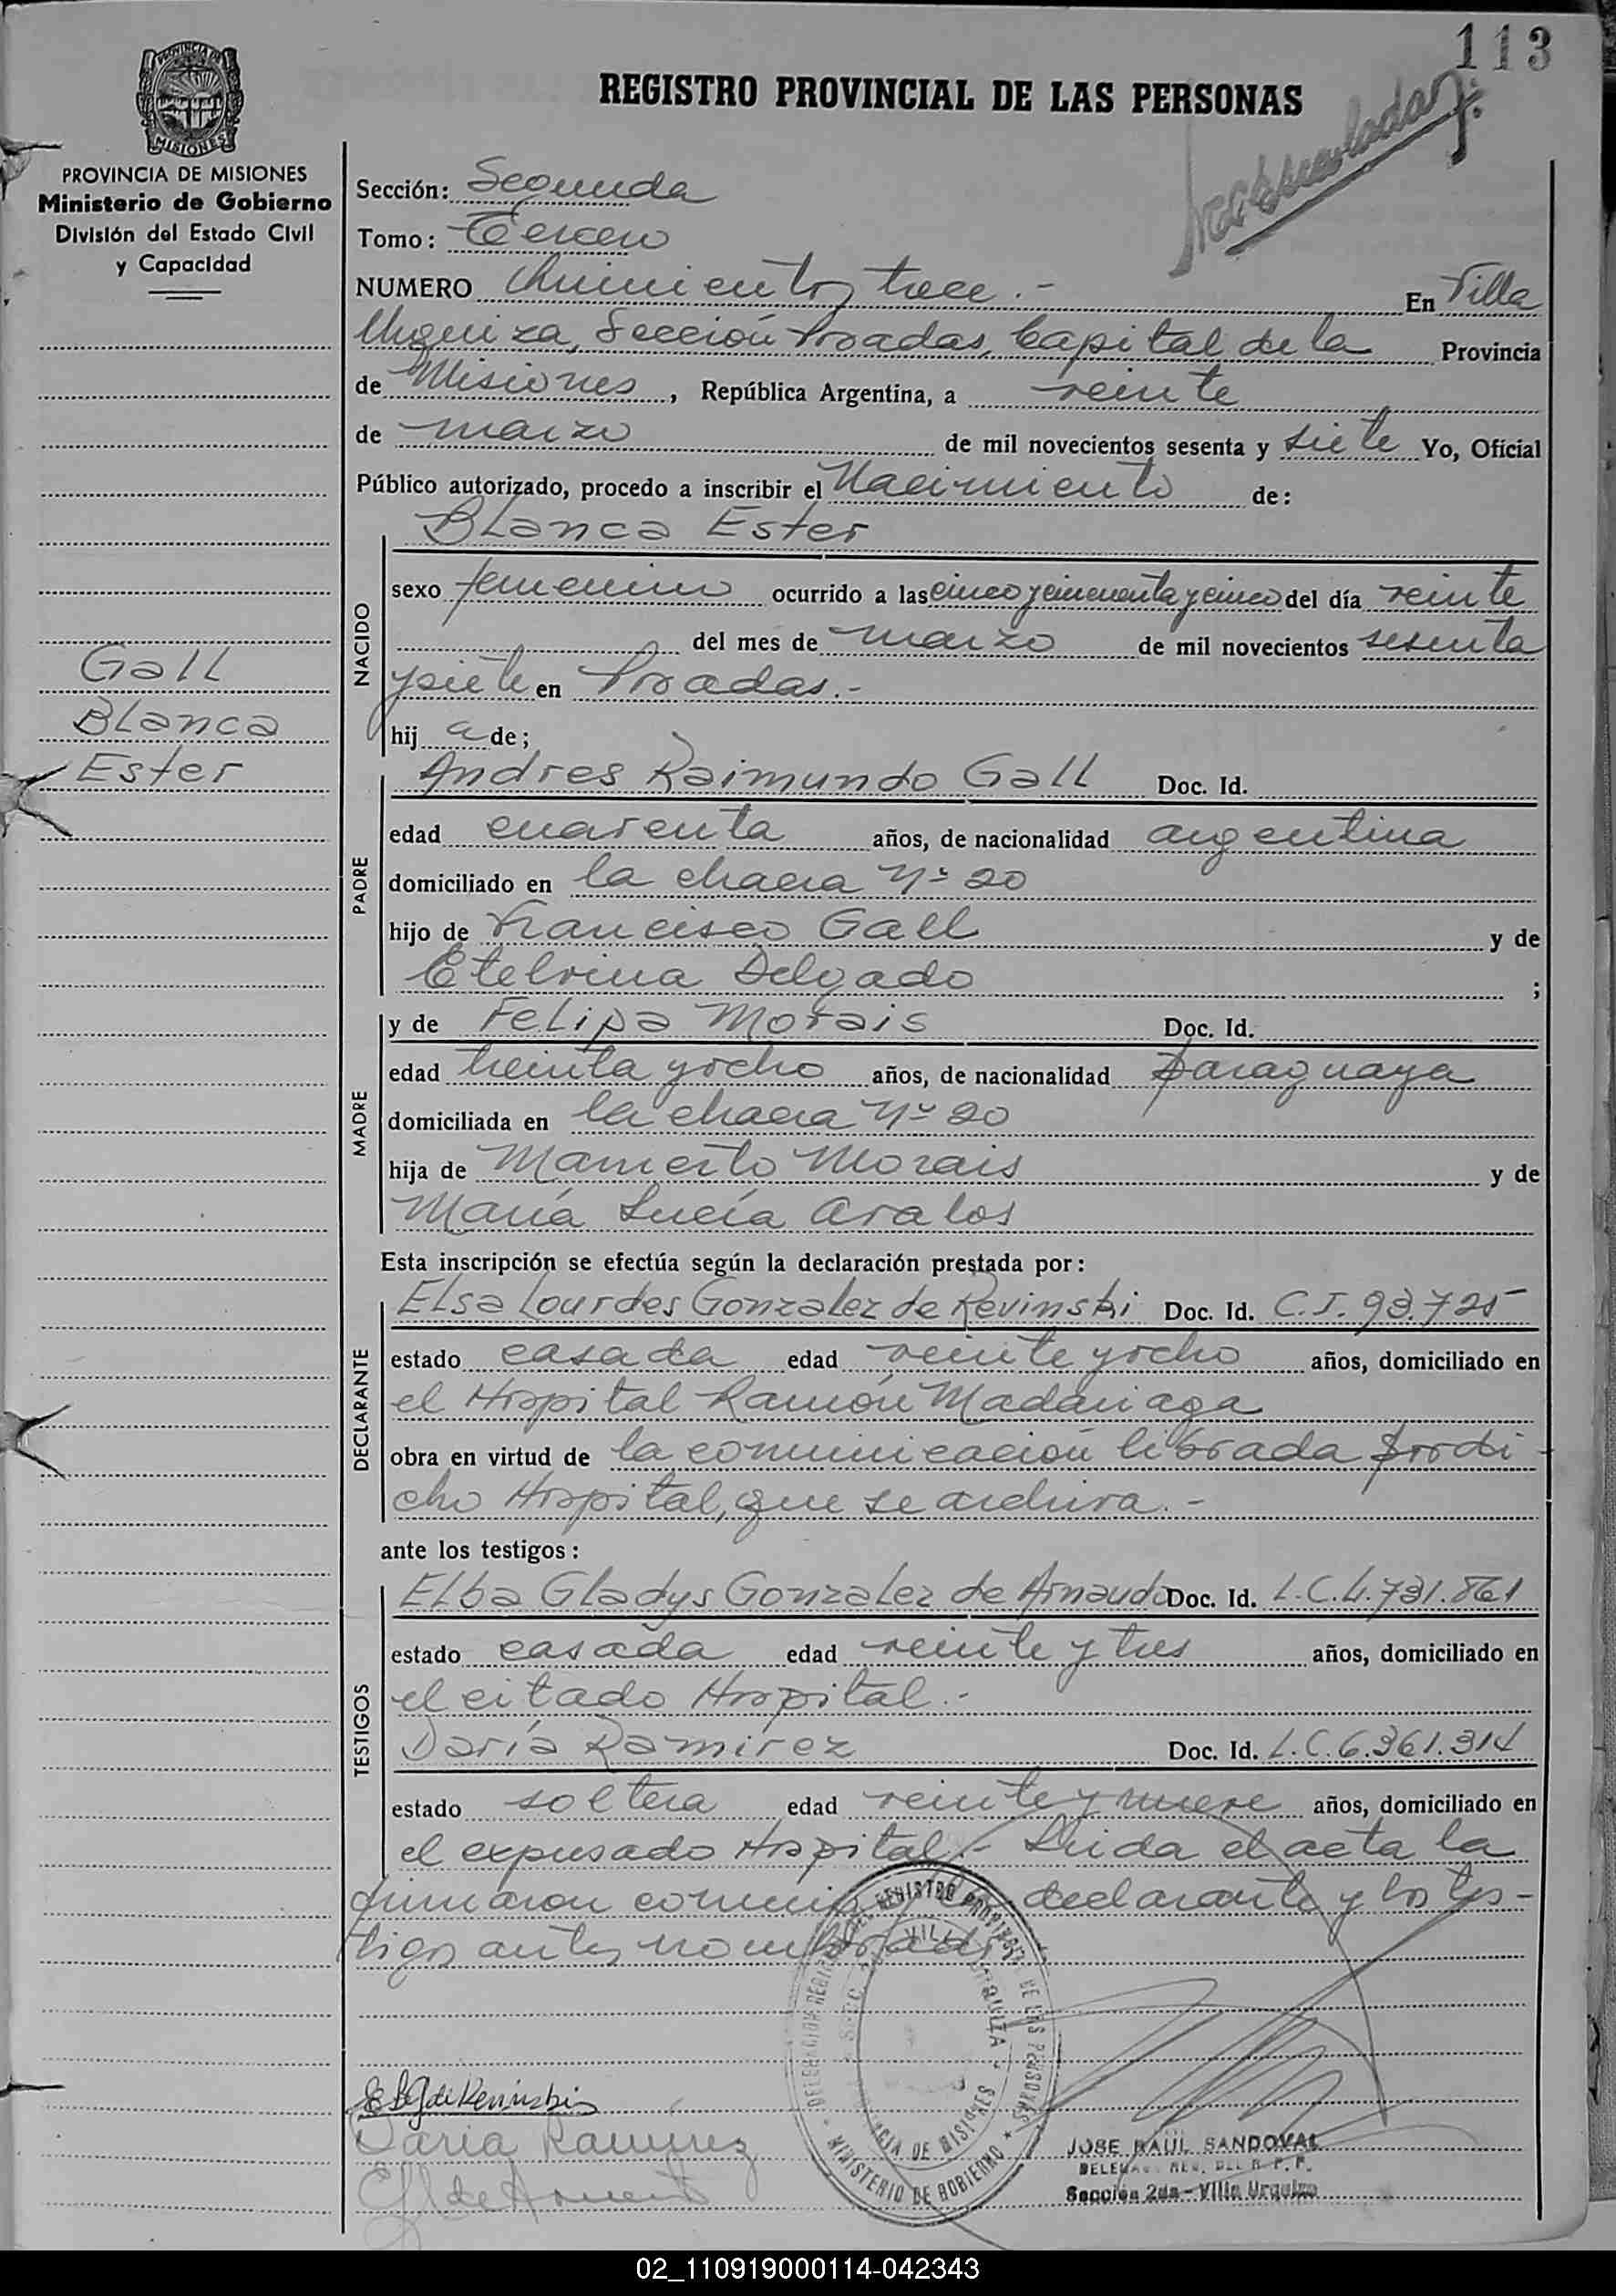 113
REGISTRO PROVINCIAL DE LAS PERSONAS
PROVINCIA DE MISIONES
MISIONES
PROVINCIA DE MISIONES
Ministerio de Gobierno
División del Estado Civil
y Capacidad
Sección: Segunda
Tomo: Tercero
NUMERO Quinientos trece.- En Villa
Urquiza, Sección Posadas, Capital de la Provincia
de Misiones, República Argentina, a veinte
de marzo de mil novecientos sesenta y siete Yo, Oficial
Público autorizado, procedo a inscribir el Nacimiento de:
Blanca Ester
NACIDO
sexo femenino ocurrido a las cinco y cincuenta y cinco del día veinte
del mes de marzo de mil novecientos sesenta
y siete en Posadas.-
hij a de;
Gall
Blanca
Ester
PADRE
Andres Raimundo Gall Doc. Id.
edad cuarenta años, de nacionalidad argentina
domiciliado en la chacra Nº 20
hijo de Francisco Gall y de
Etelvina Delgado ;
MADRE
y de Felipa Morais Doc. Id.
edad treinta y ocho años, de nacionalidad paraguaya
domiciliada en la chacra Nº 20
hija de Mamerto Morais y de
María Lucía Avalos
Esta inscripción se efectúa según la declaración prestada por:
DECLARANTE
Elsa Lourdes Gonzalez de Kevinski Doc. Id. C.I. 93.725
estado casada edad veinte y ocho años, domiciliado en
el Hospital Ramón Madariaga
obra en virtud de la comunicación librada por di-
cho Hospital, que se archiva.-
ante los testigos:
TESTIGOS
Elba Gladys Gonzalez de Arnaudo Doc. Id. L.C. 4.731.861
estado casada edad veinte y tres años, domiciliado en
el citado Hospital.-
Daría Ramírez Doc. Id. L.C. 6.361.314
estado soltera edad veinte y nueve años, domiciliado en
el expresado Hospital.- Leida el acta la
firmaron conmigo la declarante y los tes-
tigos antes nombrados
MINISTERIO DE GOBIERNO
Daria Ramirez
JOSE RAUL SANDOVAL
Sección 2da - Villa Urquiza
02_110919000114-042343